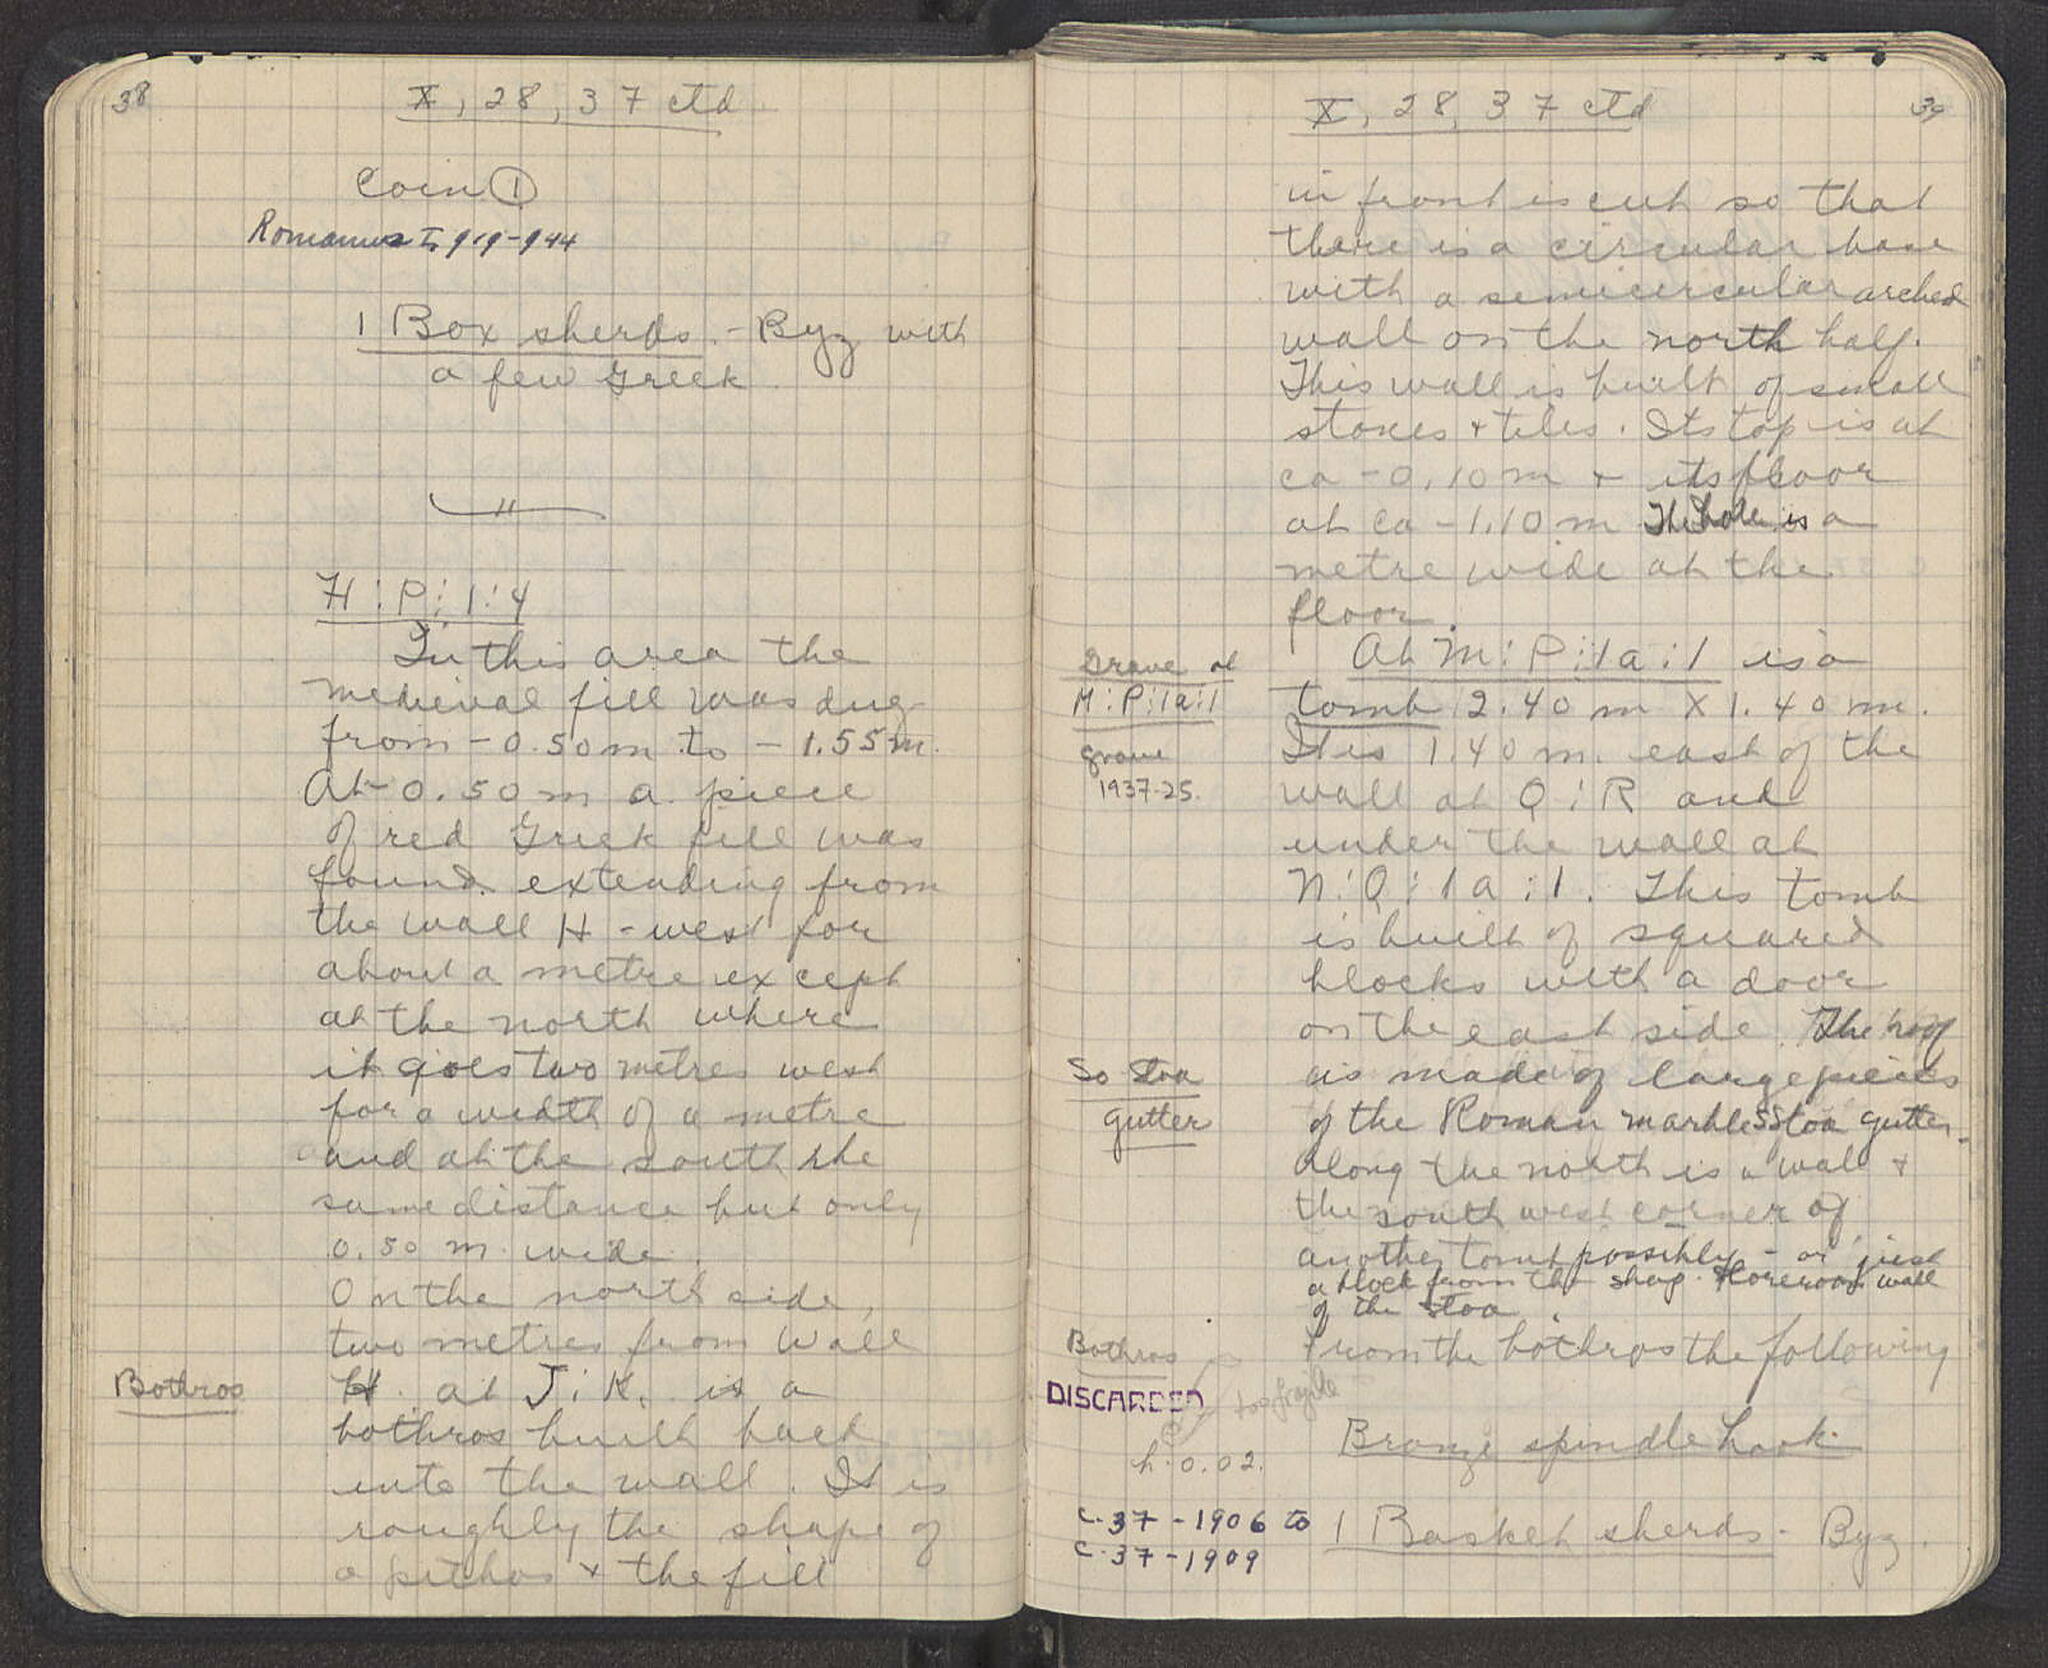 38
X, 28, 37 ctd
Coin ①
Romanus I, 919-944
1 Box sherds - Byz with
a few Greek
"
H:P:1:4
In this area the
medieval fill was dug
from -0.50m to -1.55m.
At -0.50m a piece
of red Greek fill was
found extending from
the wall H - west for
about a metre except
at the north where
it goes two metres west
for a width of a metre
and at the south the
same distance but only
0.50 m. wide.
On the north side,
two metres from Wall
Bothros
H. at J:K, is a
bothros built back
into the wall. It is
roughly the shape of
a pithos + the fill
39
X, 28, 37 ctd
in front is cut so that
there is a circular base
with a semicircular arched
wall on the north half.
This wall is built of small
stones + tiles. Its top is at
ca -0.10 m + its floor
at ca -1.10 m The hole is a
metre wide at the
floor.
Grave at
M:P:1a:1
grave
1937-25.
At M:P:1a:1 is a
tomb 2.40 m X 1.40 m.
It is 1.40 m. east of the
wall at Q:R and
under the wall at
N:Q:1a:1. This tomb
is built of squared
blocks with a door
on the east side. The roof
is made of large pieces
So Stoa
gutter
of the Roman marble S Stoa gutter.
Along the north is a wall +
the south west corner of
another tomb possibly - or just
a block from the shop storeroom wall
of the stoa.
Bothros
From the bothros the following
DISCARDED
too fragile
h. 0.02.
Bronze spindle hook.
C-37-1906 to
C-37-1909
1 Basket sherds - Byz.